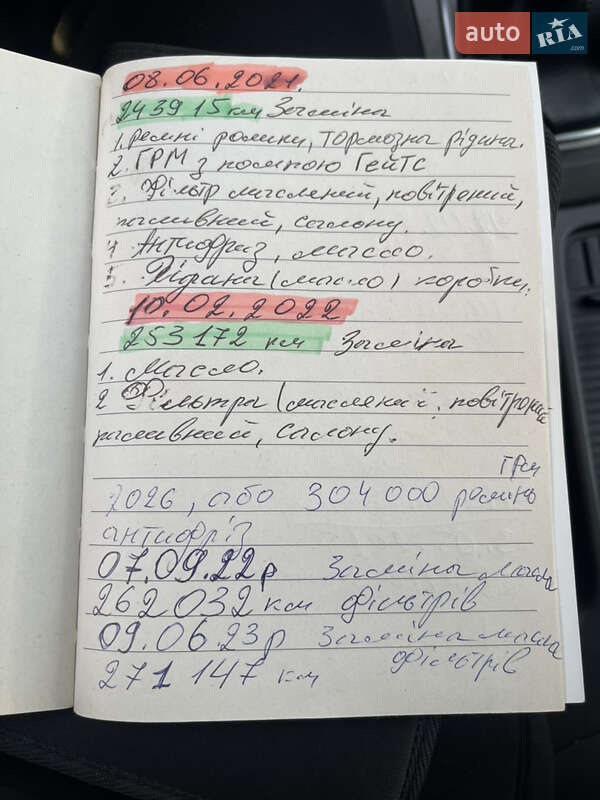 auto RIA .com
08.06.2021.
243915 км Заміна
1. ремні ролики, тормозна рідина.
2. ГРМ з помпою Гейтс
3. Фільтр масляний, повітряний,
паливний, салону.
4 Антифриз, масло.
5. Рідина (масло) коробки.
10.02.2022
253172 км Заміна
1. Масло.
2 Фільтра (масляний, повітряний
паливний, салону.
ГРМ
2026, або 304000 ремінь
антифріз
07.09.22р Заміна масла
262032 км фільтрів
09.06.23р Заміна масла
фільтрів
271 147 км